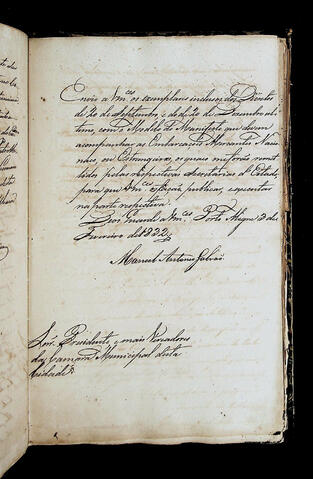 Envio a Vm.ces os exemplares inclusos dos Decretos
de 20 de Septembro, e de 20 de Dezembro ul-
timo, com o Modelo do Manifesto que devem
acompanhar as Embarcações Mercantes Nacio-
naes ou Estrangeiras, os quaes me forão remet-
tidos pelas respectivas Secretarias de Estado,
para que Vm.ces os fação publicar, e executar
na parte respectiva.
Deos Guarde a Vm.ces Porto Alegre 3 de
Fevereiro de 1832.
Manoel Antonio Galvão
Snr.s Presidente, e mais Vereadores
da Camara Municipal desta
Cidade.